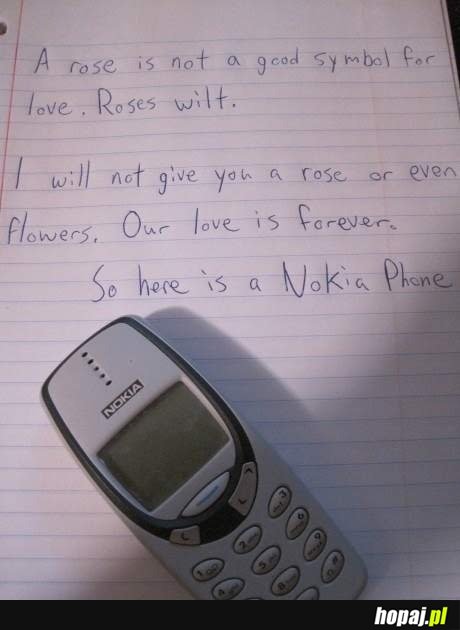 A rose is not a good symbol for
love. Roses wilt.
I will not give you a rose or even
flowers. Our love is forever.
So here is a Nokia Phone
NOKIA
C
C
1
2
3
4
5
6
8
9
hopaj.pl